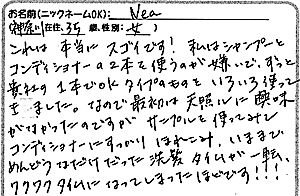 お名前(ニックネームOK): Nea
(神奈川在住、35歳、性別: 女)
これは本当にスゴイです! 私はシャンプーと
コンディショナーの2本を使うのが嫌いで、ずっと
貴社の1本でOKタイプのものをいろいろ使って
きました。なので最初は天照ルに興味
がなかったのですが サンプルを使ってみて
コンディショナーにすっかりほれこみ、いままで
めんどうなだけだった洗髪タイムが一転、
ワクワクタイムになってしまったほどです!!!